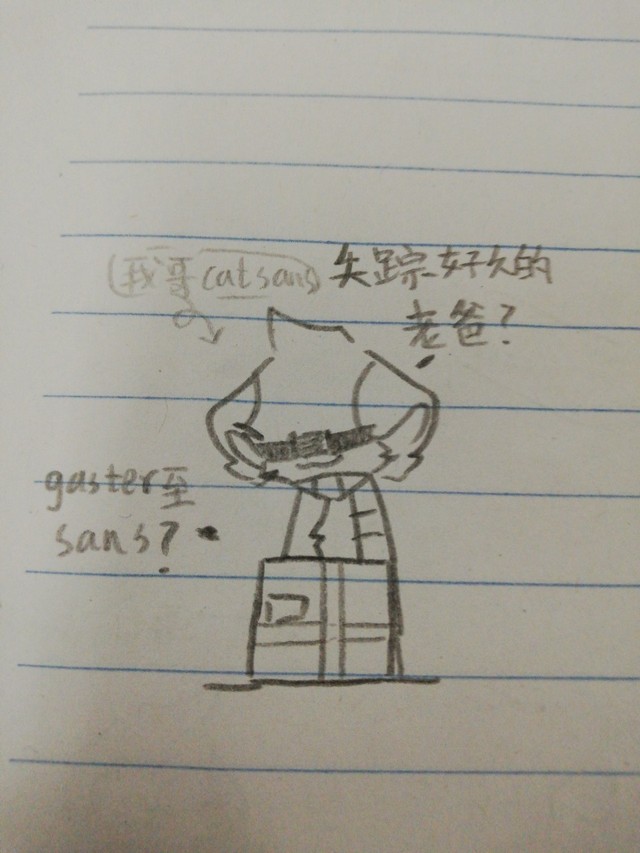 (我哥catsans)
失踪好久的
老爸?
gaster至
sans?